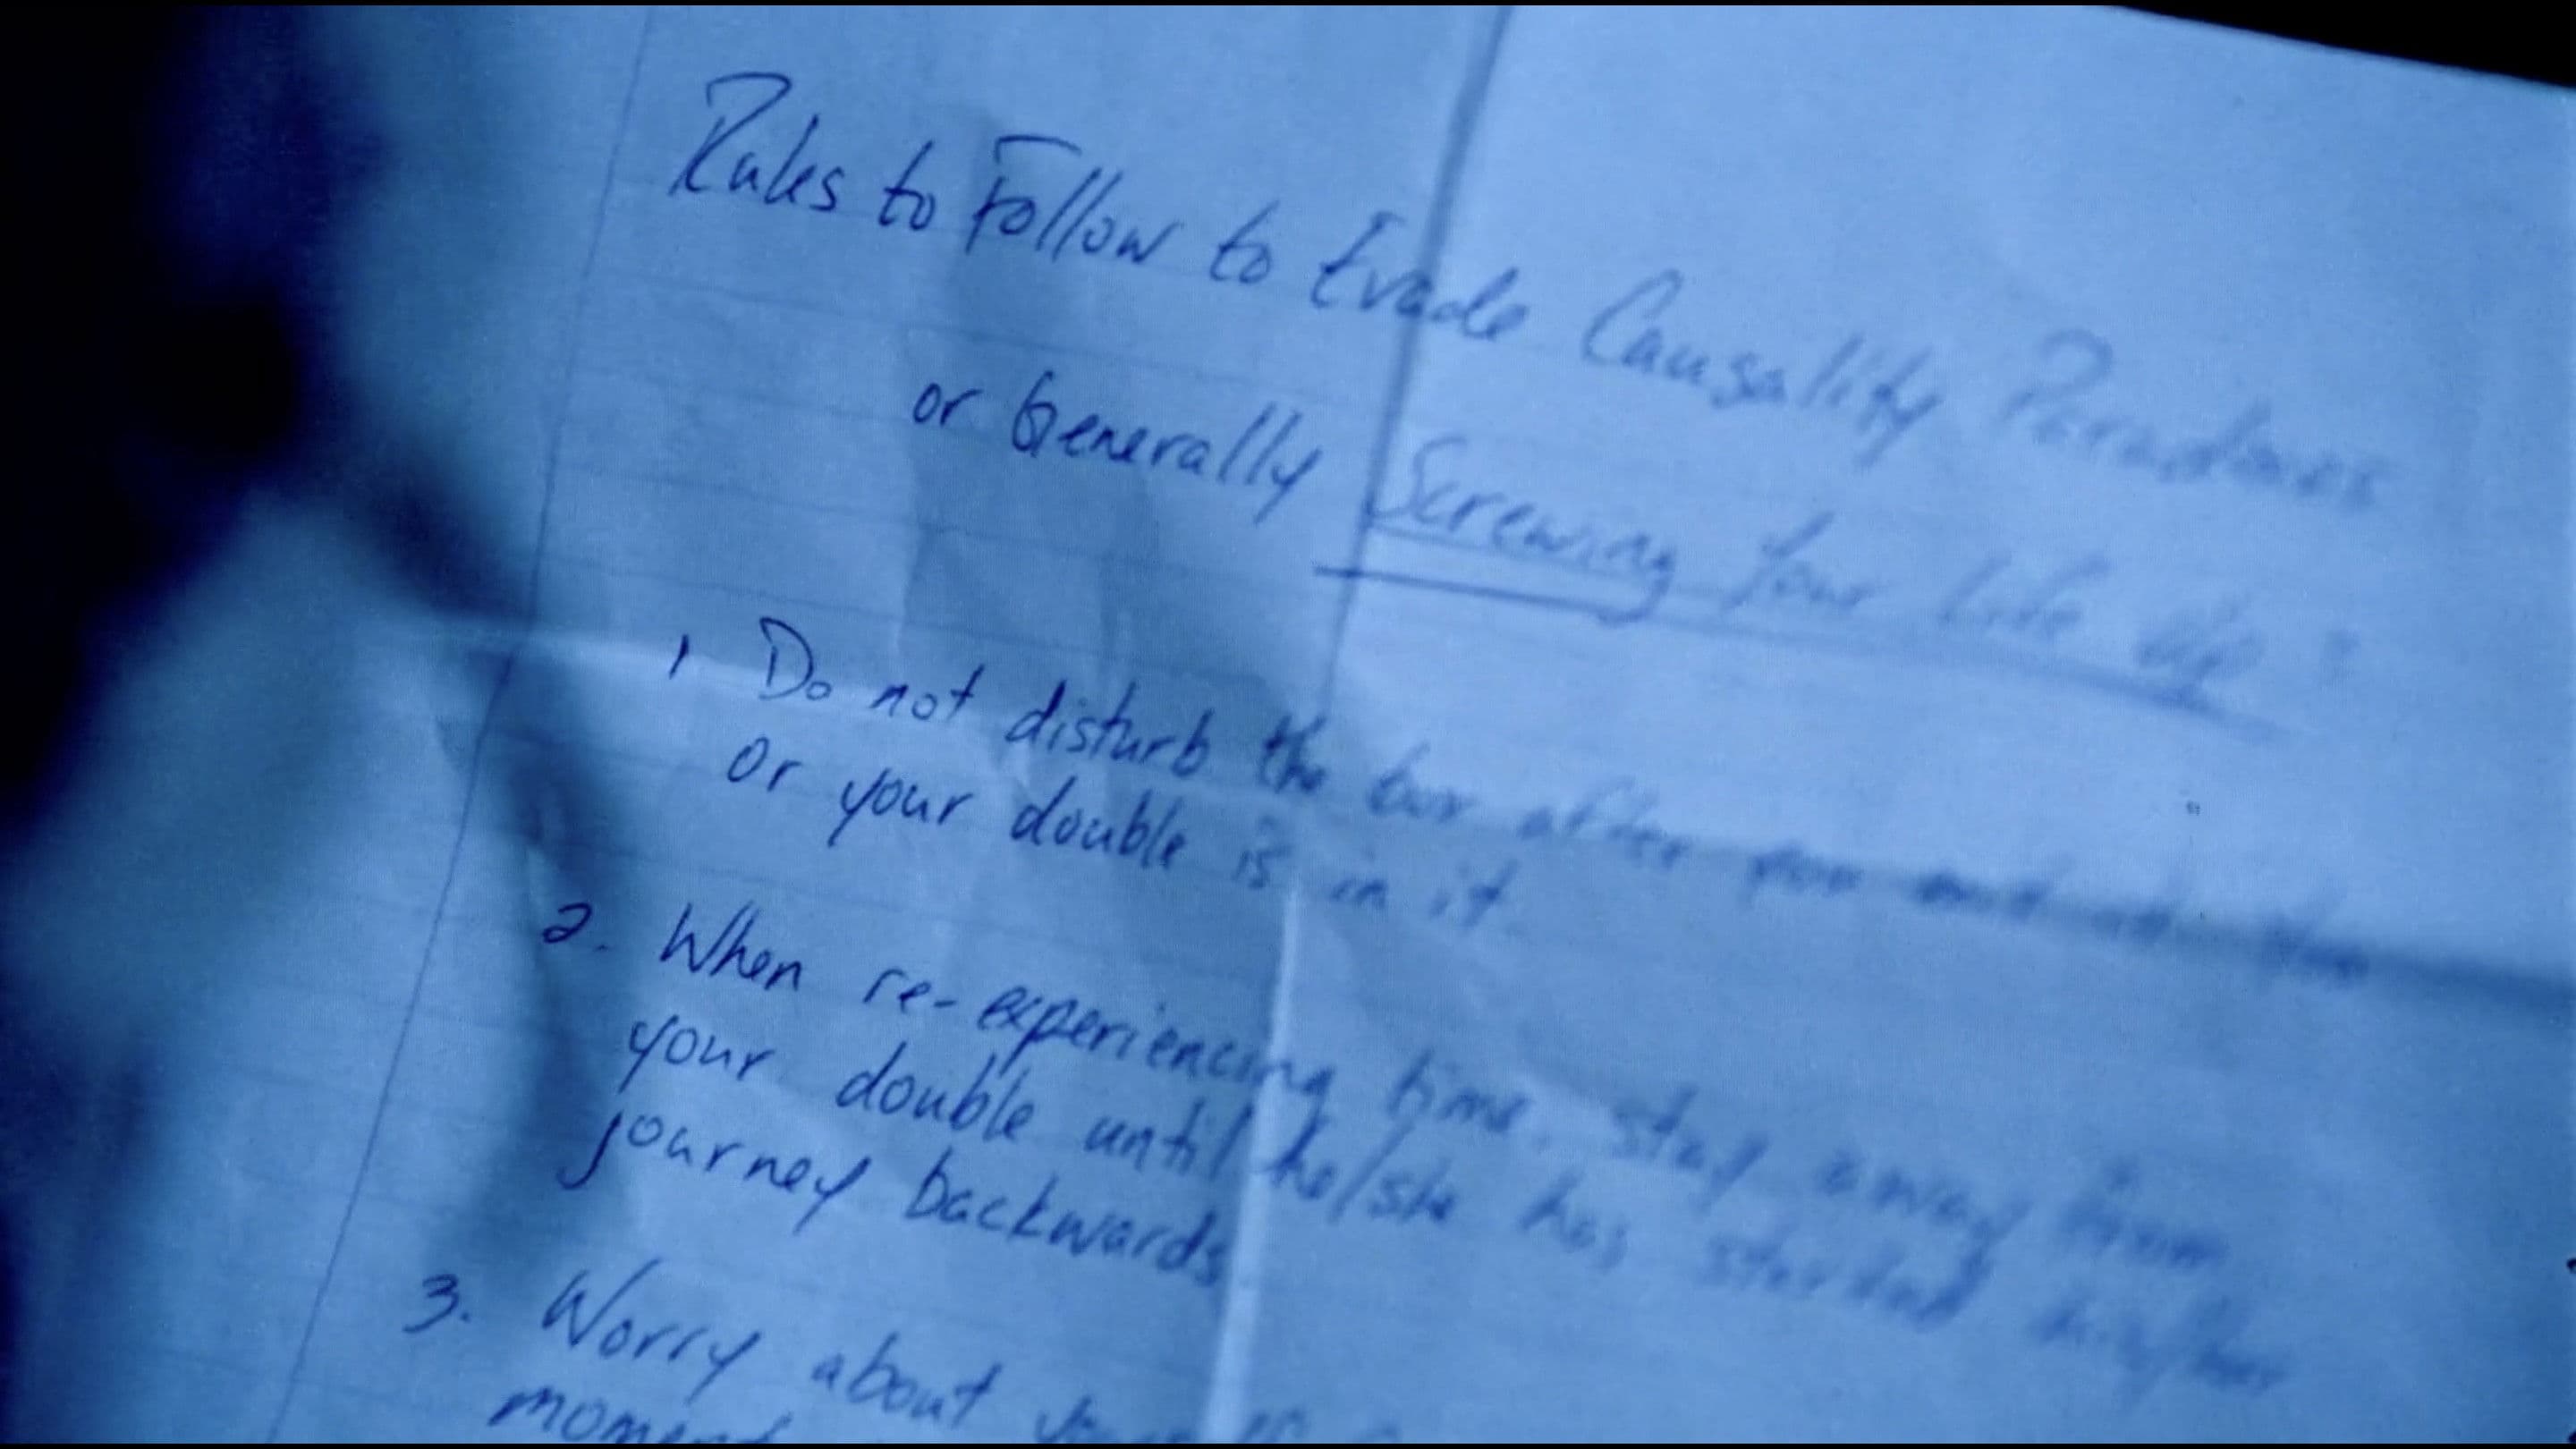 Rules to Follow to Evade Causality Paradoxes
or Generally Screwing Your Life Up:
1 Do not disturb the box after you
or your double is in it.
2. When re-experiencing time, stay away from
your double until he/she has started his/her
journey backwards
3. Worry about
moment